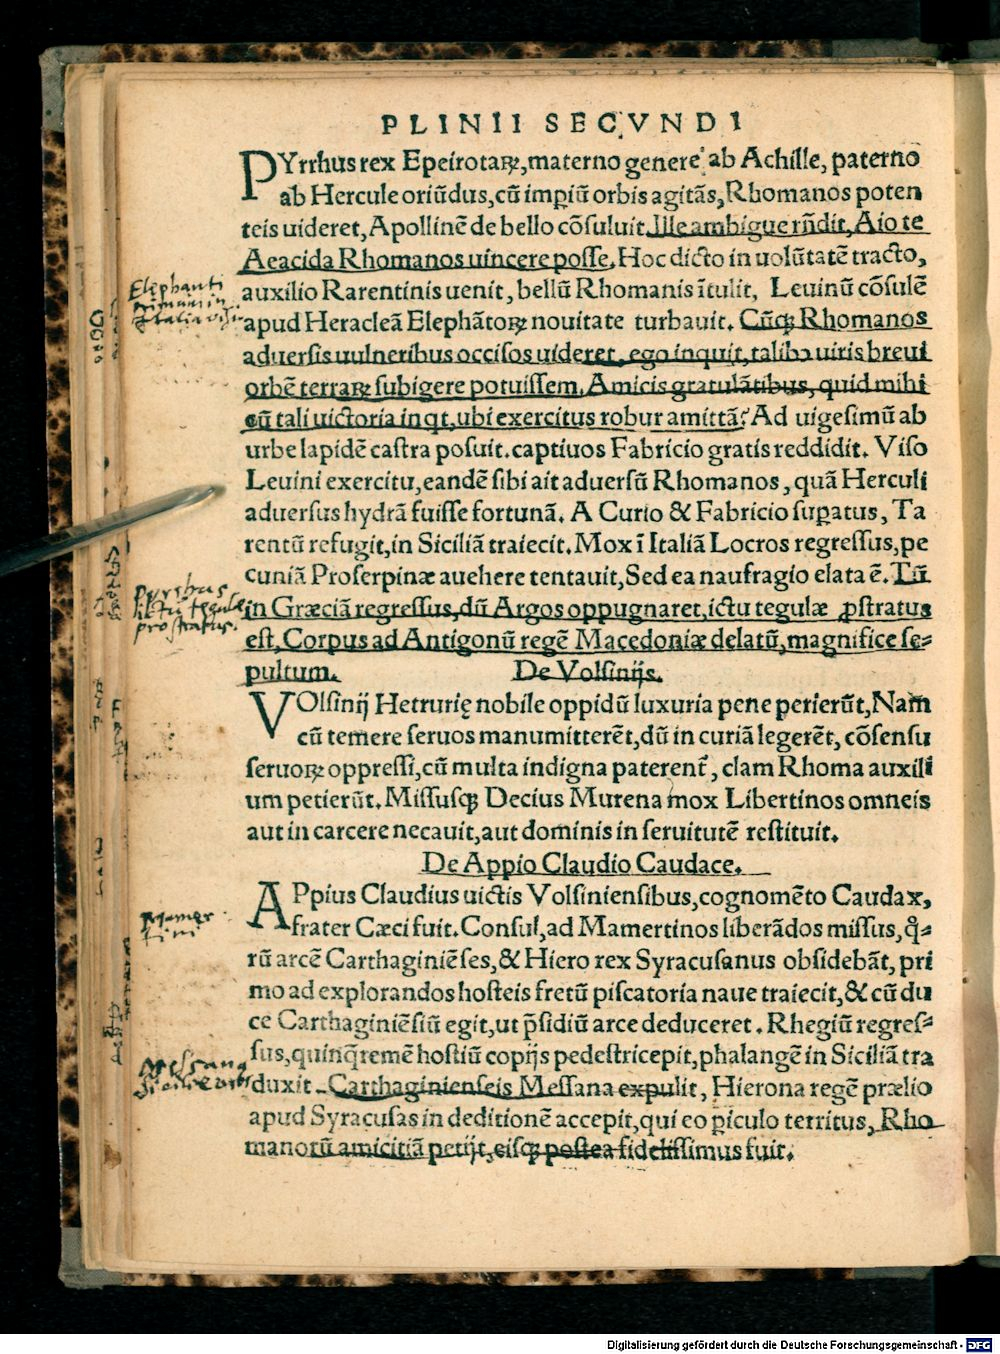 PLINII SECVNDI
PYrrhus rex Epeirotaꝝ, materno genere ab Achille, paterno
ab Hercule oriũdus, cũ impiũ orbis agitãs, Rhomanos poten
teis uideret, Apollinẽ de bello cõsuluit. Ille ambigue rñdit, Aio te
Aeacida Rhomanos uincere posse. Hoc dicto in uolũtatẽ tracto,
auxilio Rarentinis uenit, bellũ Rhomanis ĩtulit, Leuinũ cõsulẽ
apud Heracleã Elephãtoꝝ nouitate turbauit. Cũqꝫ Rhomanos
aduersis uulneribus occisos uideret, ego inquit, talibꝰ uiris breui
orbẽ terraꝝ subigere potuissem. Amicis gratulãtibus, quid mihi
cũ tali uictoria inqt, ubi exercitus robur amittã? Ad uigesimũ ab
urbe lapidẽ castra posuit. captiuos Fabricio gratis reddidit. Viso
Leuini exercitu, eandẽ sibi ait aduersũ Rhomanos, quã Herculi
aduersus hydrã fuisse fortunã. A Curio & Fabricio supatus, Ta
rentũ refugit, in Siciliã traiecit. Mox ĩ Italiã Locros regressus, pe
cuniã Proserpinæ auehere tentauit, Sed ea naufragio elata ẽ. Tũ
in Græciã regressus, dũ Argos oppugnaret, ictu tegulæ ꝓstratus
est, Corpus ad Antigonũ regẽ Macedoniæ delatũ, magnifice se-
pultum. De Volsinijs.
VOlsinij Hetrurię nobile oppidũ luxuria pene perierũt, Nam
cũ temere seruos manumitterẽt, dũ in curiã legerẽt, cõsensu
seruoꝝ oppressi, cũ multa indigna paterent᷑, clam Rhoma auxili
um petierũt. Missusqꝫ Decius Murena mox Libertinos omneis
aut in carcere necauit, aut dominis in seruitutẽ restituit.
De Appio Claudio Caudace.
APpius Claudius uictis Volsiniensibus, cognomẽto Caudax,
frater Cæci fuit. Consul, ad Mamertinos liberãdos missus, qͦ-
rũ arcẽ Carthaginiẽses, & Hiero rex Syracusanus obsidebãt, pri
mo ad explorandos hosteis fretũ piscatoria naue traiecit, & cũ du
ce Carthaginiẽsiũ egit, ut p̃sidiũ arce deduceret. Rhegiũ regres-
sus, quinq̃remẽ hostiũ copijs pedestricepit, phalangẽ in Siciliã tra
duxit. Carthaginienseis Messana expulit, Hierona regẽ prælio
apud Syracusas in deditionẽ accepit, qui eo piculo territus, Rho
manorũ amicitiã petijt, eisqꝫ postea fidelissimus fuit.
Elephanti
primum in
Italia visi
Pyrrhus
ictu tegulæ
prostratus.
Mamer
tini
Messana
Siciliæ urbs
Digitalisierung gefördert durch die Deutsche Forschungsgemeinschaft - DFG